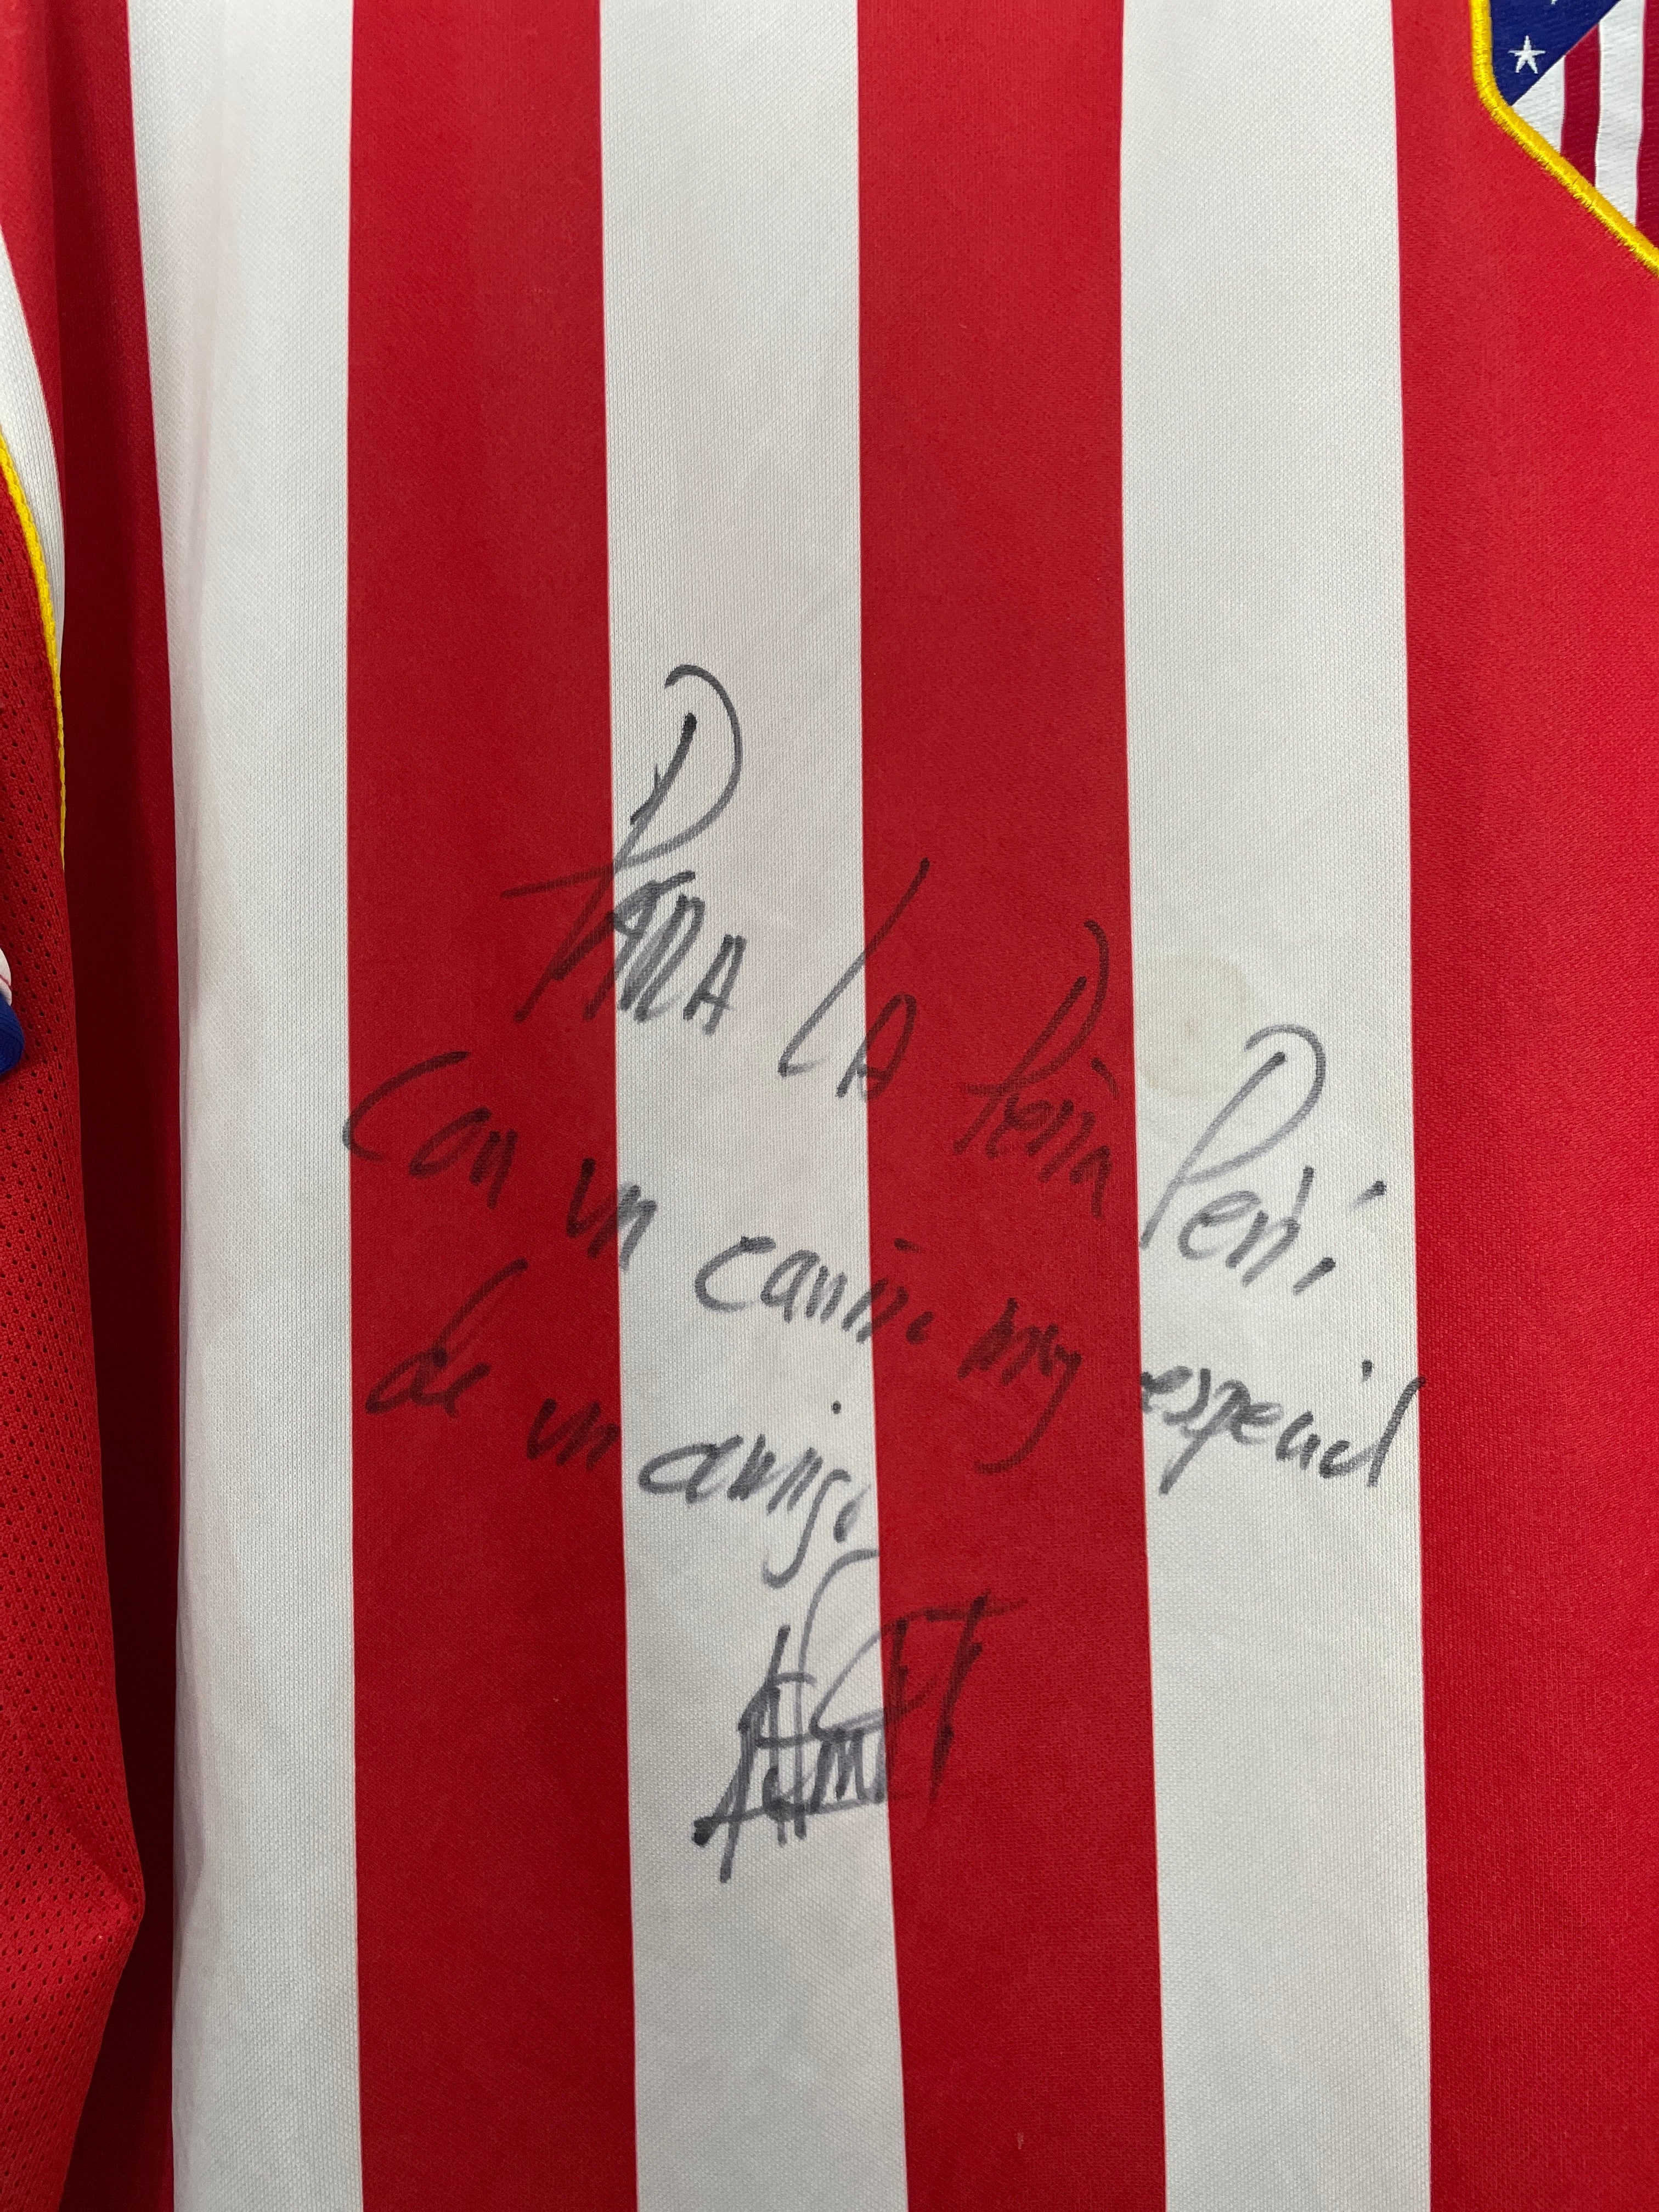 PARA LA Peña Peni
Con un cariño muy especial
de un amigo